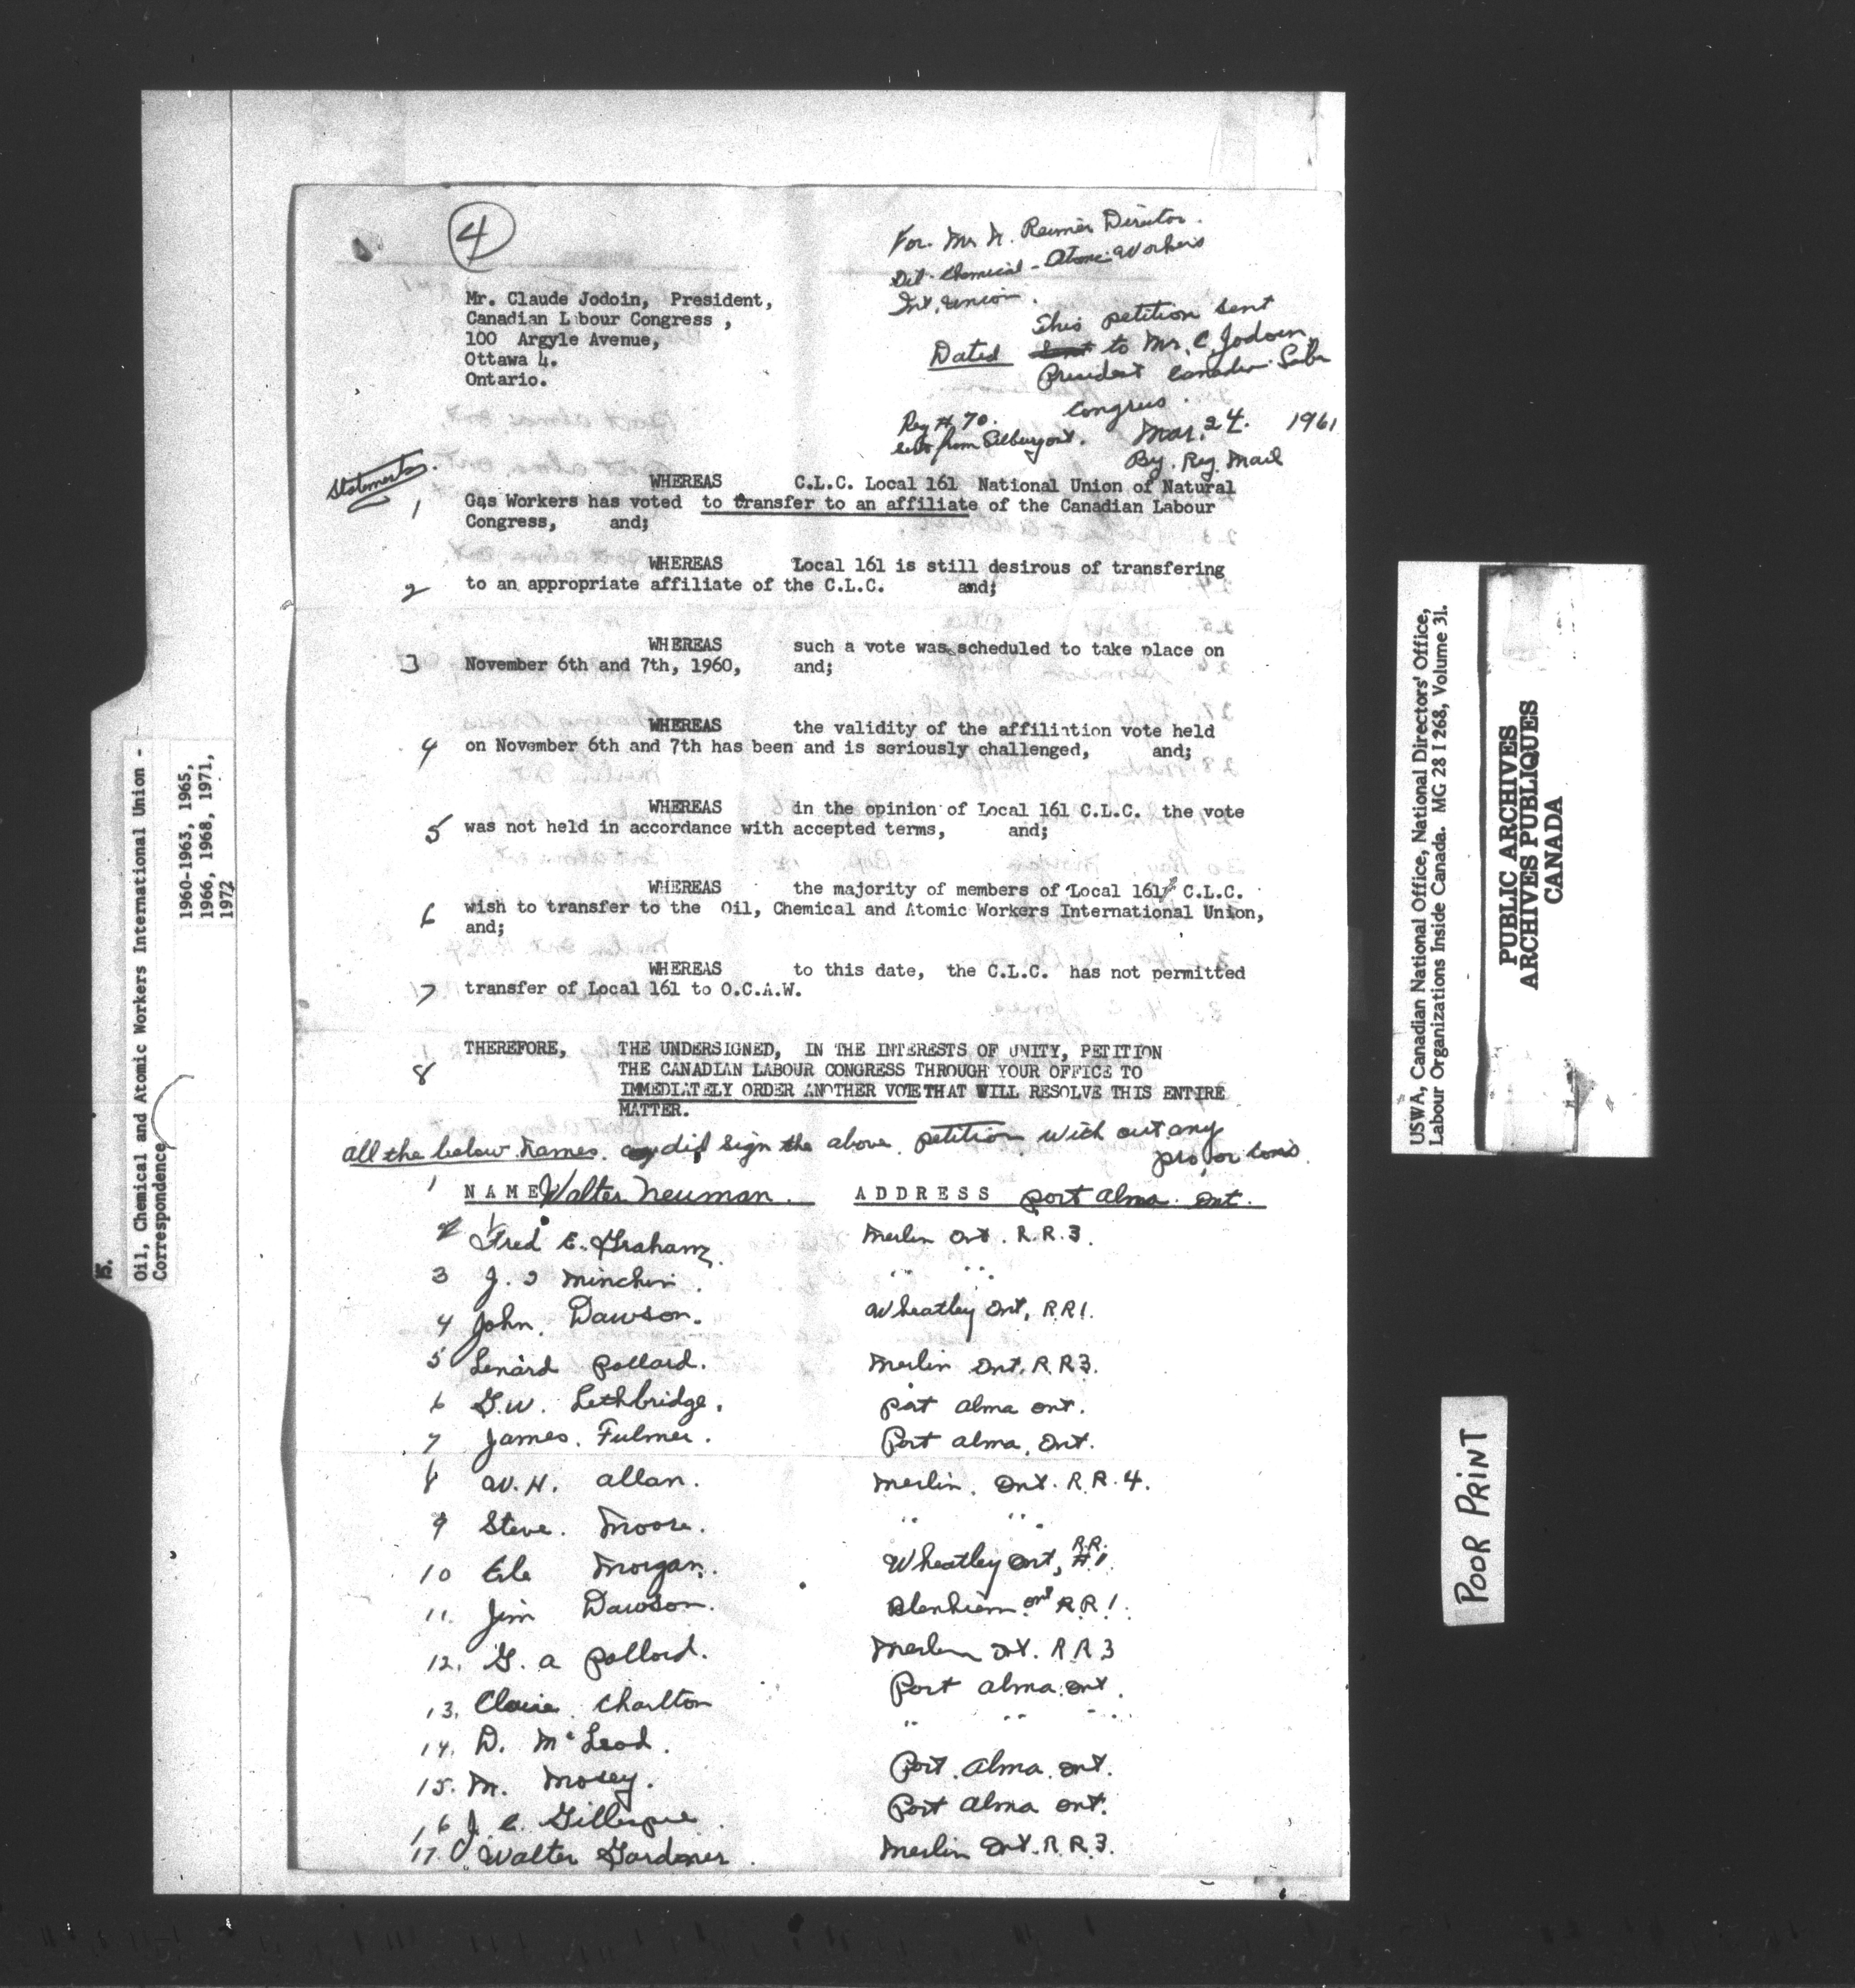 4
For. Mr N. Reimer Director.
Oil. Chemical - Atomic Workers
Int. Union.
This petition sent
Dated to Mr. C Jodoin
President Canadian Labr
Congress.
Reg # 70.
sent from Tilbury ont. Mar. 24. 1961
By. Reg. Mail
Mr. Claude Jodoin, President,
Canadian L bour Congress ,
100 Argyle Avenue,
Ottawa 4.
Ontario.
Statements.
WHEREAS C.L.C. Local 161 National Union of Natural
1 Gas Workers has voted to transfer to an affiliate of the Canadian Labour
Congress, and;
WHEREAS Local 161 is still desirous of transfering
2 to an appropriate affiliate of the C.L.C. and;
WHEREAS such a vote was scheduled to take place on
3 November 6th and 7th, 1960, and;
WHEREAS the validity of the affiliation vote held
4 on November 6th and 7th has been and is seriously challenged, and;
WHEREAS in the opinion of Local 161 C.L.C. the vote
5 was not held in accordance with accepted terms, and;
WHEREAS the majority of members of Local 161 C.L.C.
6 wish to transfer to the Oil, Chemical and Atomic Workers International Union,
and;
WHEREAS to this date, the C.L.C. has not permitted
7 transfer of Local 161 to O.C.A.W.
THEREFORE, THE UNDERSIGNED, IN THE INTERESTS OF UNITY, PETITION
8 THE CANADIAN LABOUR CONGRESS THROUGH YOUR OFFICE TO
IMMEDIATELY ORDER ANOTHER VOTE THAT WILL RESOLVE THIS ENTIRE
MATTER.
all the below names. did sign the above petition with out any
pro, or cons.
1 NAME Walter Neuman. ADDRESS port alma. ont.
2 Fred E. Graham. Merlin ont. R.R.3.
3 J. I Minchin. " "
4 John. Dawson. Wheatley Ont, R.R1.
5 Lenard Pollard. Merlin Ont. R.R3.
6 G.W. Lethbridge. port alma ont.
7 James. Fulmer. Port alma, Ont.
8 W.H. allan. Merlin. Ont. R.R.4.
9 Steve. Moore. " "
10 Erle Morgan. Wheatley Ont, R.R. #1.
11. Jim Dawson. Blenhiem ont RR1.
12. G. a Pollard. Merlin Ont. R R 3
13. Claire Charlton Port alma ont.
14. D. McLeod. " " "
15. M. Mosey. Port. alma. ont.
16 J. C. Gillespie. Port alma ont.
17. Walter Gardener. Merlin Ont. R.R.3.
15.
Oil, Chemical and Atomic Workers International Union -
Correspondence
1960-1963, 1965,
1966, 1968, 1971,
1972
USWA, Canadian National Office, National Directors' Office,
Labour Organizations Inside Canada. MG 28 I 268, Volume 31.
PUBLIC ARCHIVES
ARCHIVES PUBLIQUES
CANADA
POOR PRINT